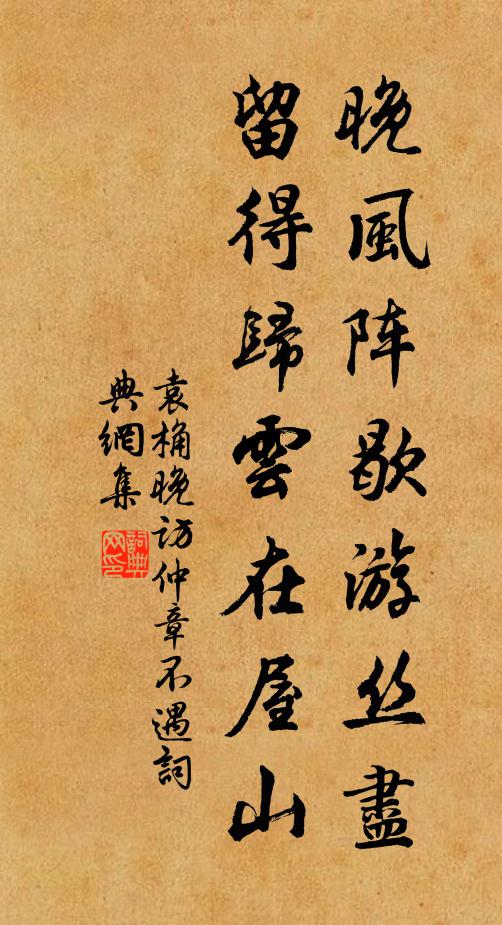 晚風阵歇游丝盡
留得歸雲在屋山
袁桷晚访仲章不遇詞
典網集
詞典网印